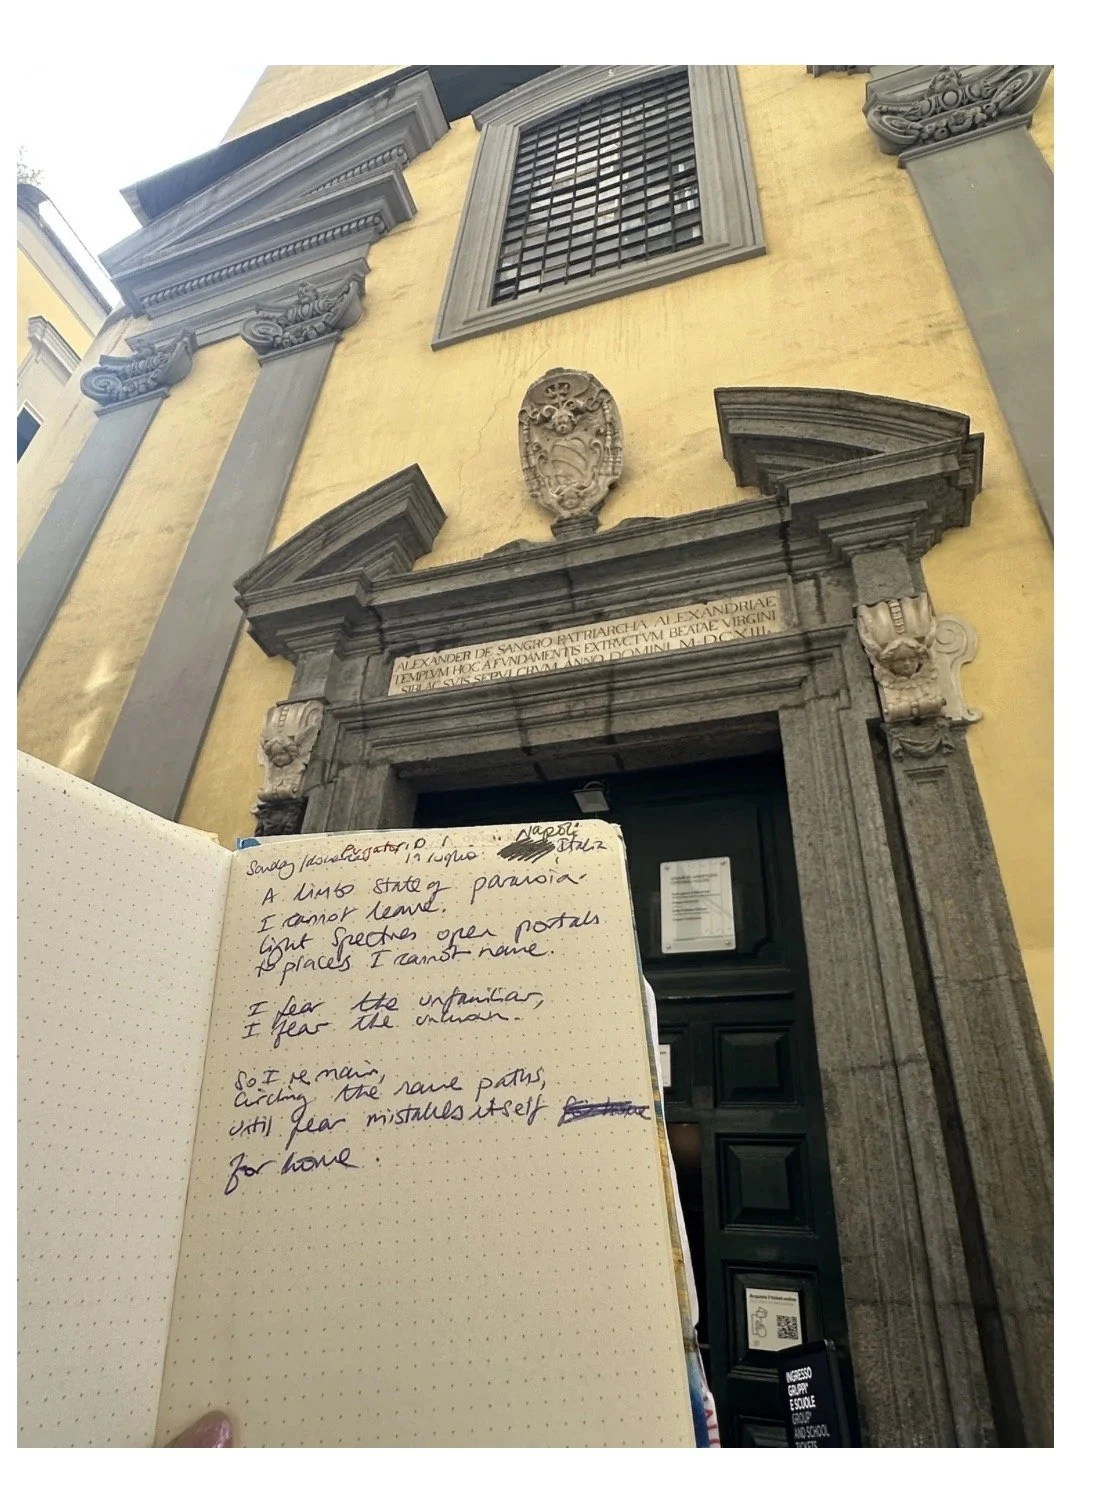 ALEXANDER DE SANGRO PATRIARCHA ALEXANDRIAE
TEMPLVM HOC A FVNDAMENTIS EXTRVCTVM BEATAE VIRGINI
SIBI AC SVIS SEPVLCRVM ANNO DOMINI M.DCXIII.
Napoli
Sunday Purgatorio luglio Italia
A limbo state of paranoia.
I cannot leave.
light spectres open portals
to places I cannot name.
I fear the unfamiliar,
I fear the unknown.
So I remain,
circling the same paths,
until fear mistakes itself
for home.
INGRESSO
GRUPPI
E SCUOLE
GROUP
AND SCHOOL
TICKETS